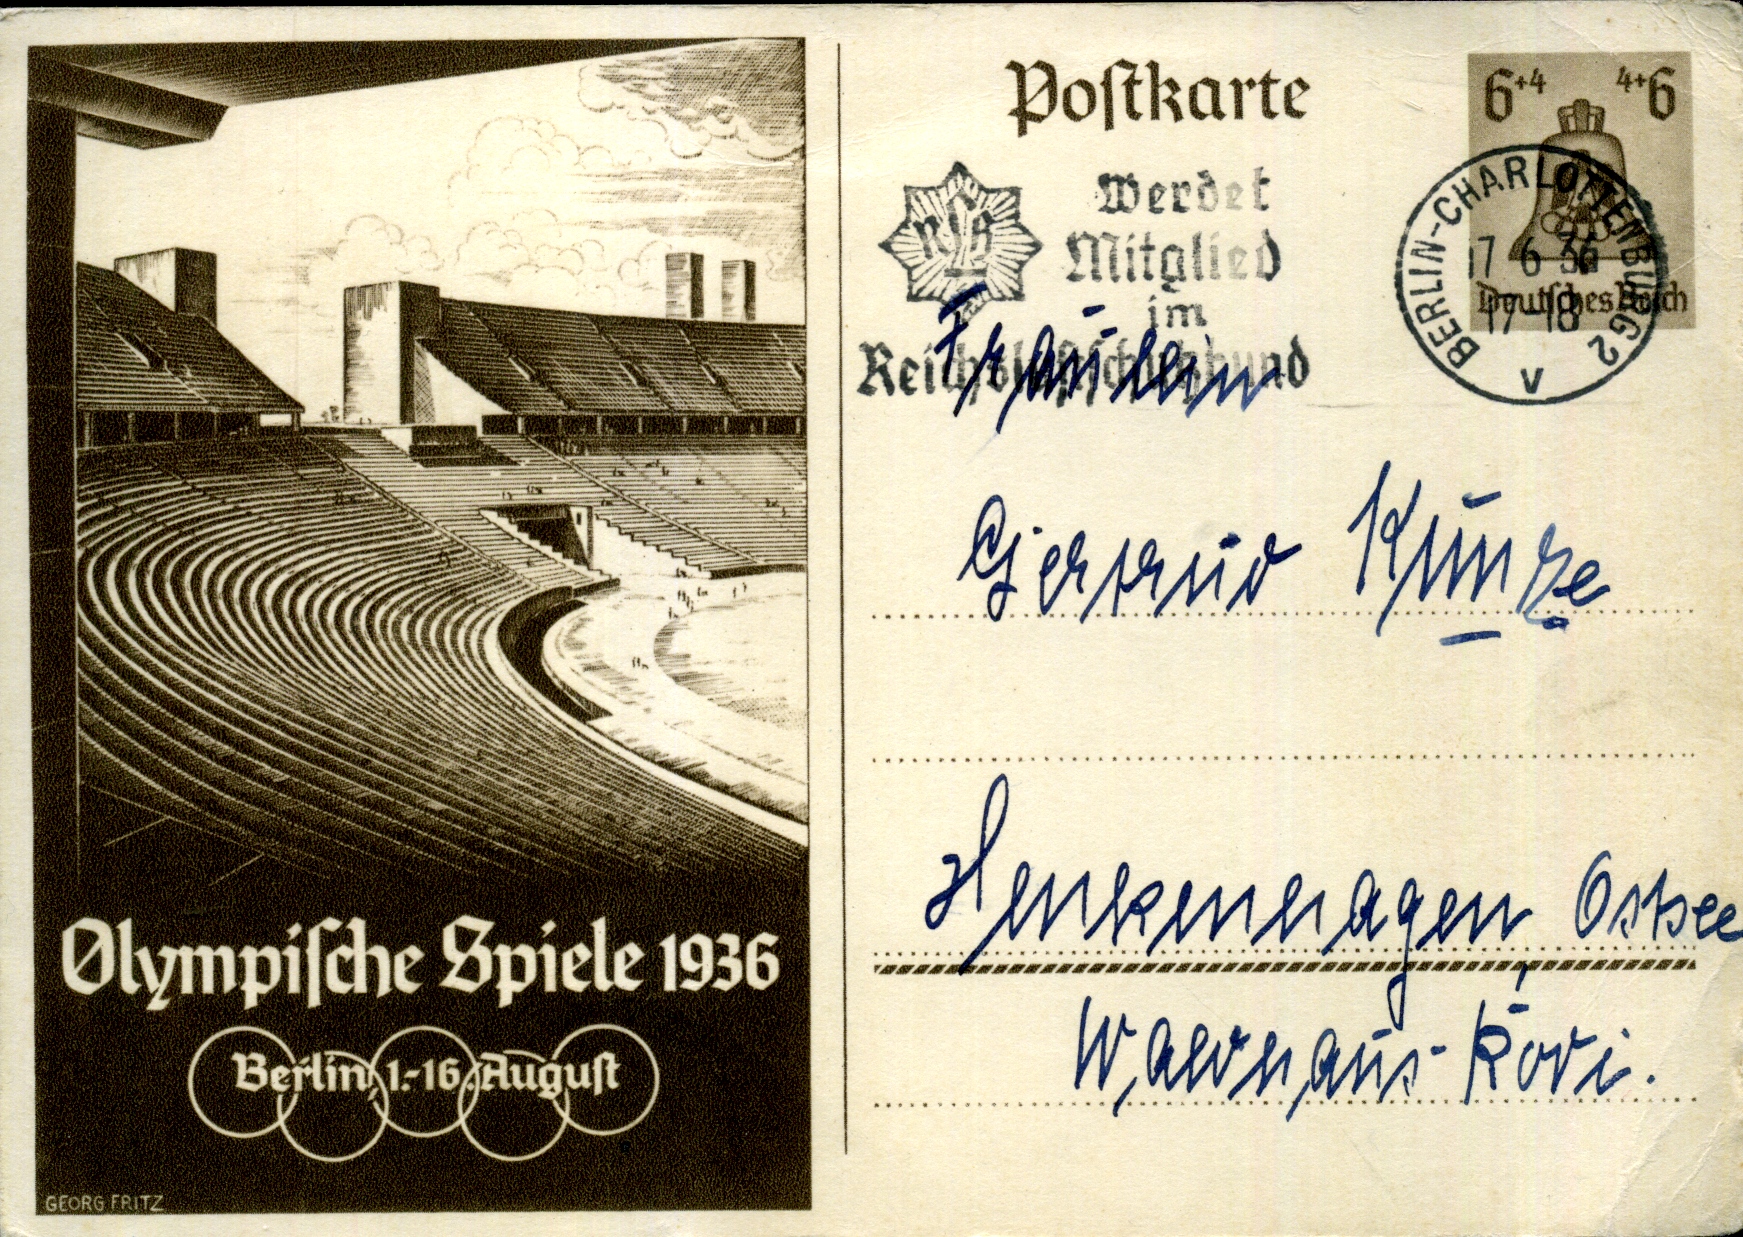 Olympiſche Spiele 1936
Berlin, 1.-16. Auguſt
GEORG FRITZ
Poſtkarte
6+4 4+6
Deutſches Reich
BERLIN-CHARLOTTENBURG 2
17 6 36
17-18
V
RLB
Werdet
Mitglied
im
Reichsluftschutzbund
Fräulein
Gertrud Kunze
Henkenhagen Ostsee
Waldhaus-Ködi.